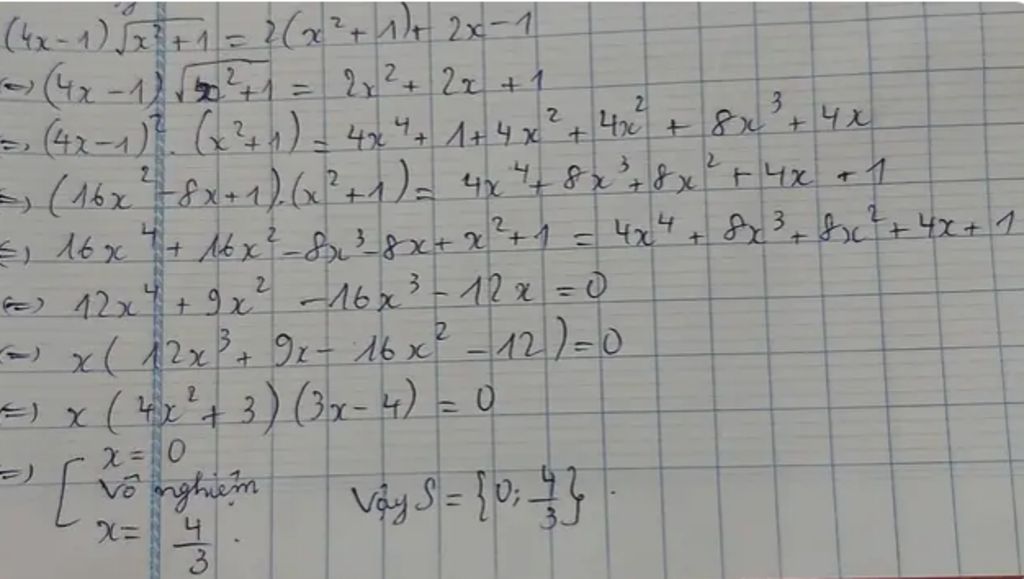 (4x-1)√(x²+1) = 2(x²+1)+ 2x-1
⇔) (4x-1)√(x²+1) = 2x²+ 2x +1
⇒) (4x-1)². (x²+1) = 4x⁴+ 1+4x²+4x² + 8x³+ 4x
⇔) (16x²-8x+1).(x²+1) = 4x⁴+ 8x³+8x²+ 4x +1
⇔) 16x⁴+ 16x²-8x³-8x+ x²+1 = 4x⁴ + 8x³+ 8x²+ 4x+1
⇔) 12x⁴ + 9x² -16x³- 12x =0
⇔) x( 12x³+ 9x- 16x² -12 )=0
⇔) x ( 4x²+ 3 ) (3x- 4) = 0
⇒) [ x = 0
vô nghiệm
x= 4/3 .
vậy S = {0; 4/3} .